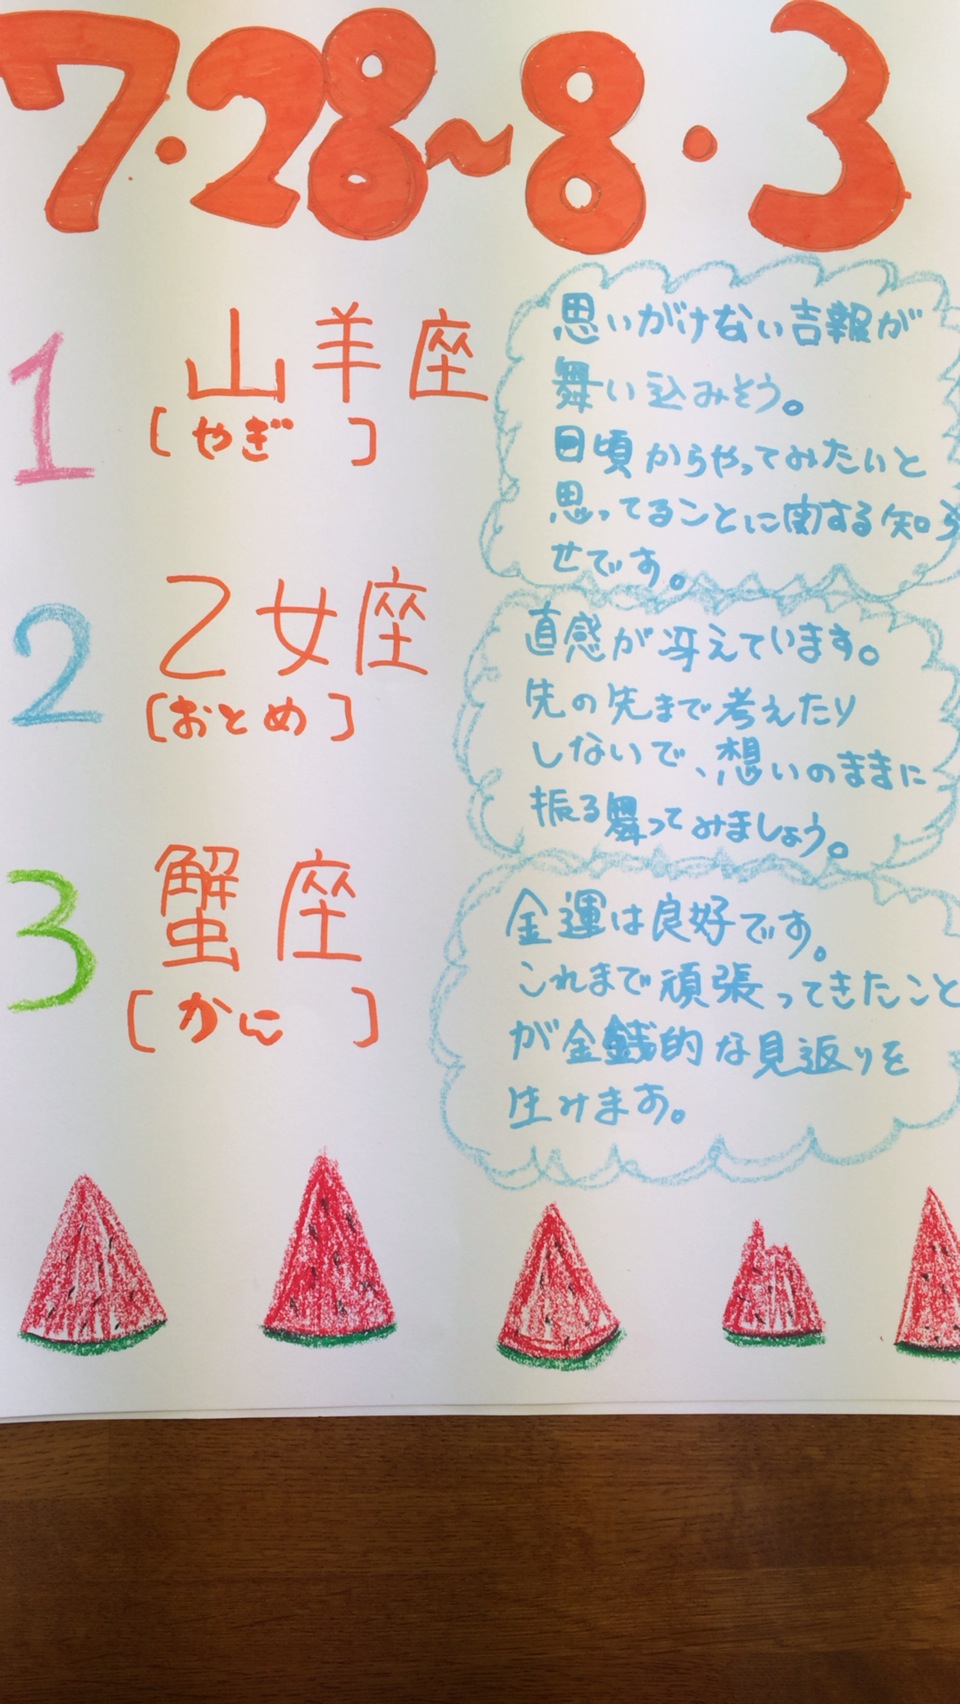 7・28〜8・3
1
山羊座
[やぎ]
思いがけない吉報が
舞い込みそう。
日頃からやってみたいと
思ってることに関する知ら
せです。
2
乙女座
[おとめ]
直感が冴えています。
先の先まで考えたり
しないで、想いのままに
振る舞ってみましょう。
3
蟹座
[かに]
金運は良好です。
これまで頑張ってきたこと
が金銭的な見返りを
生みます。